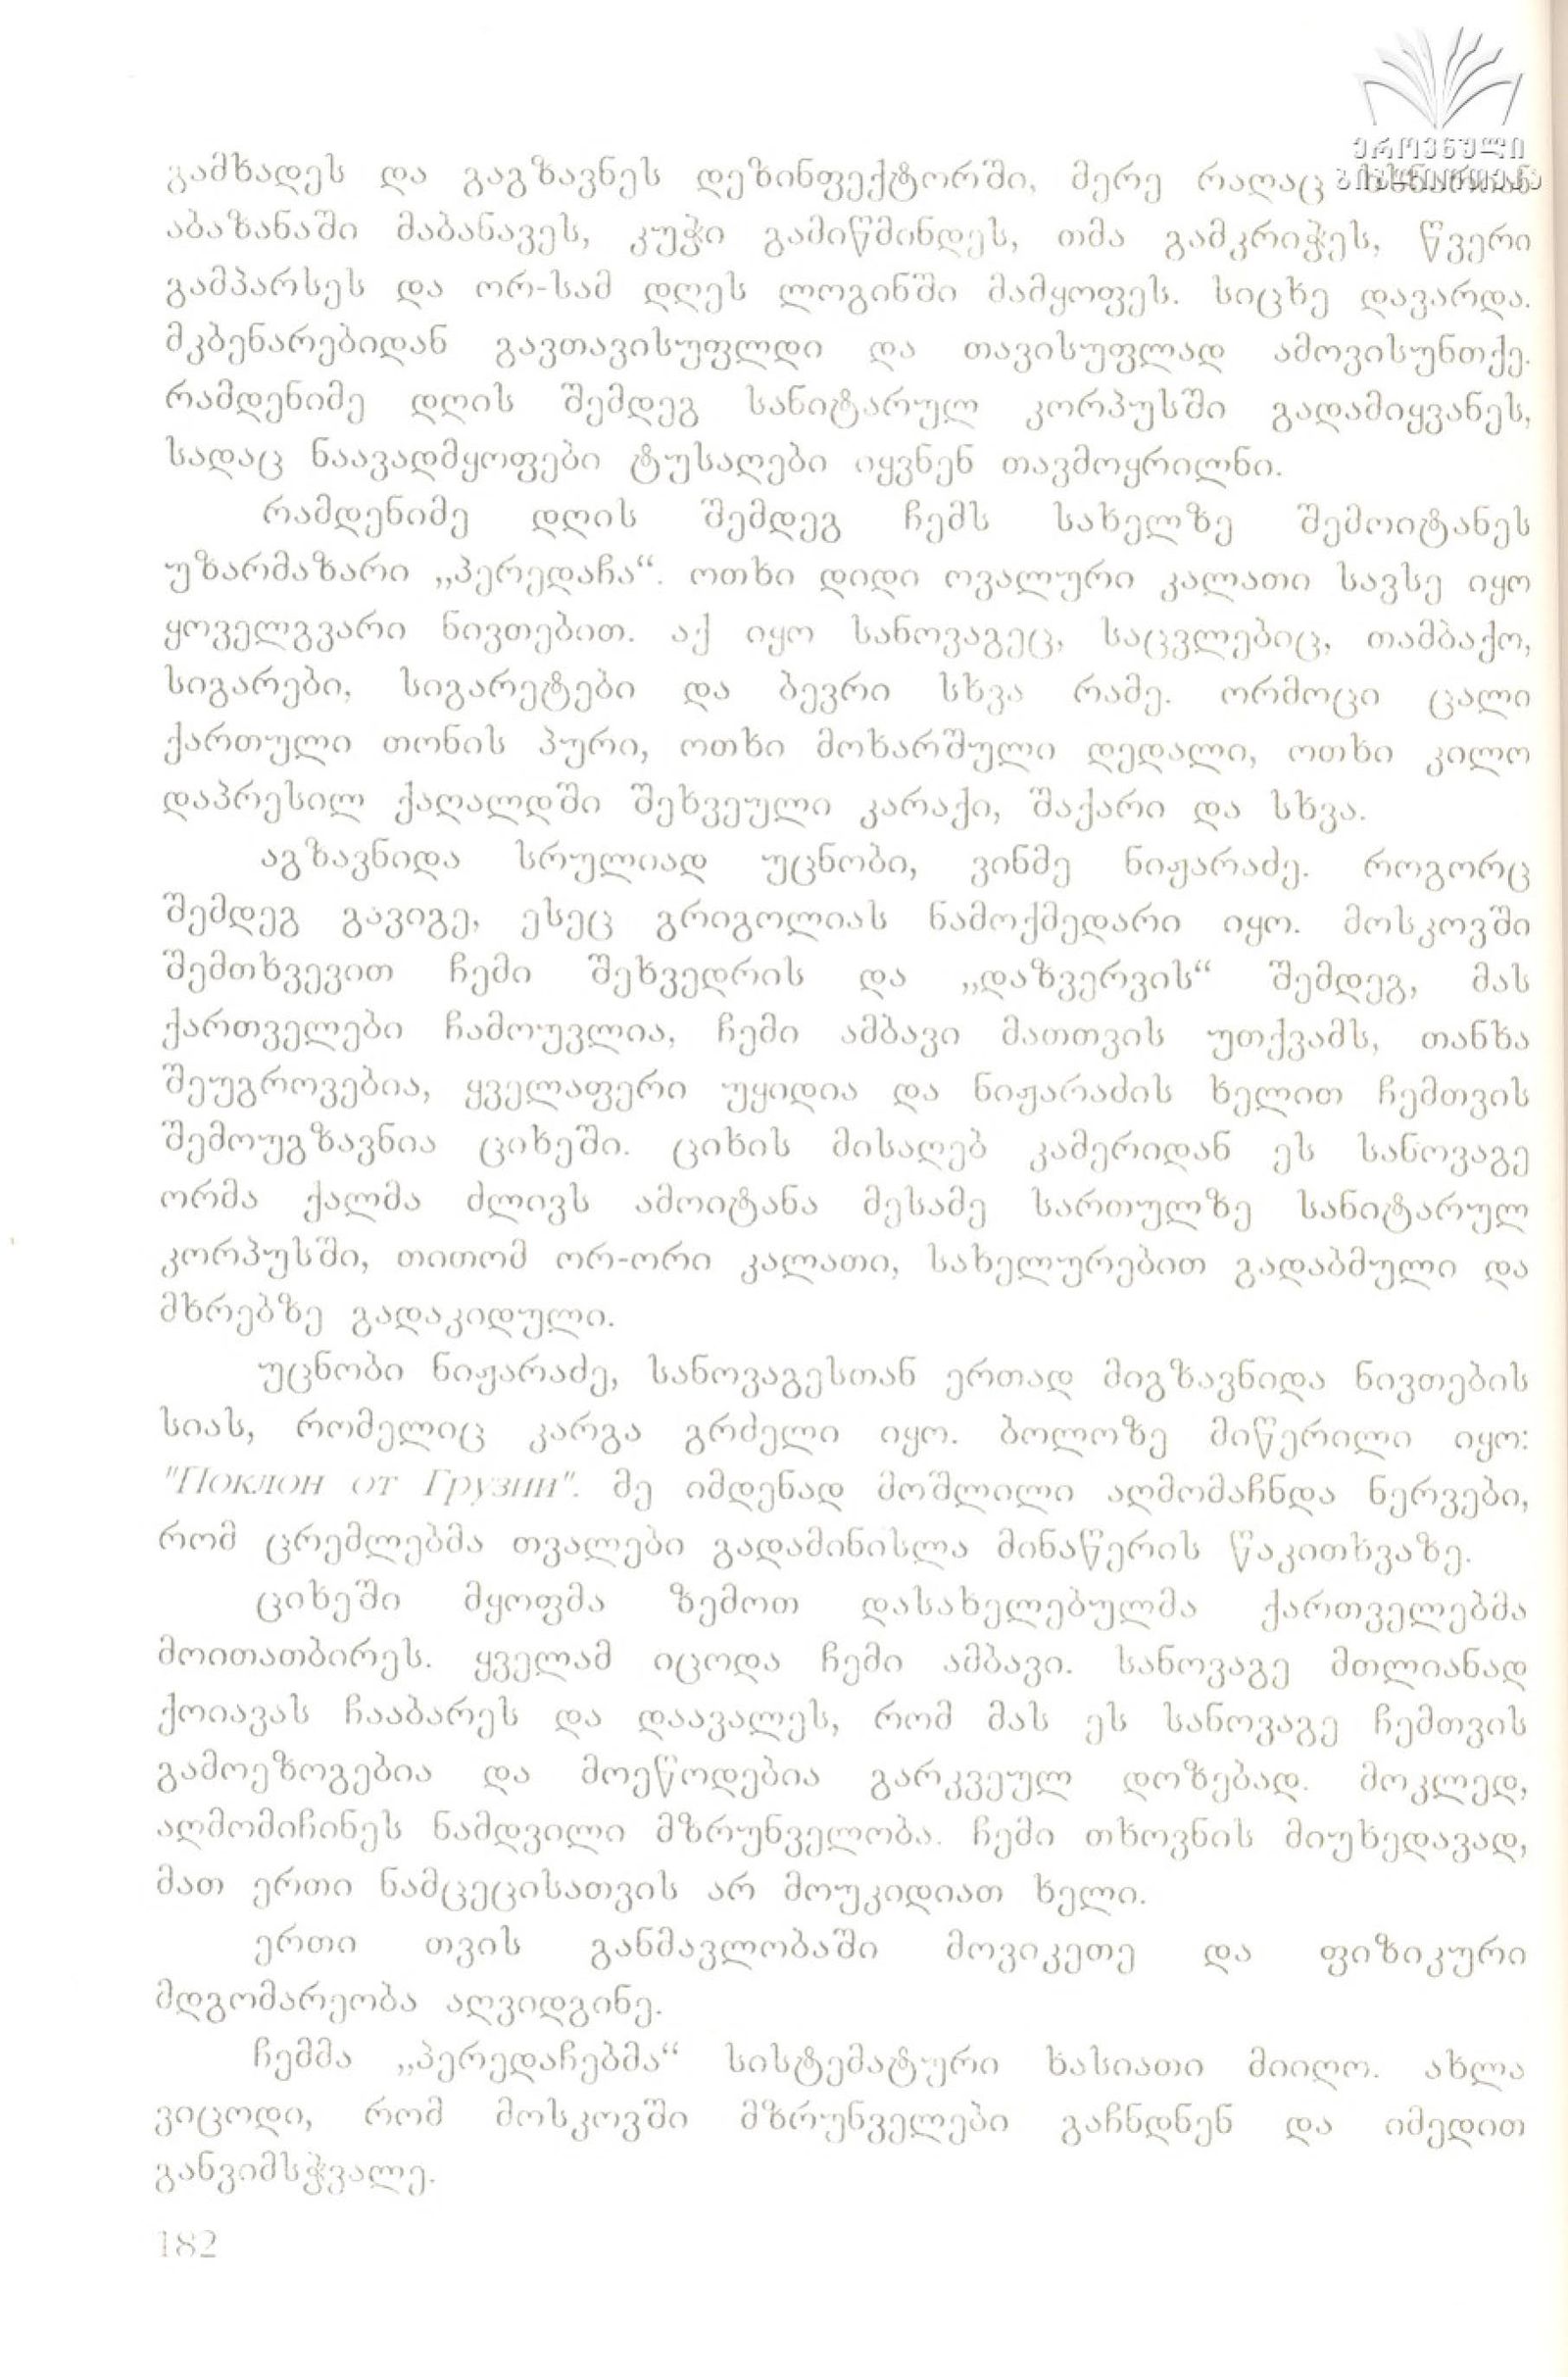 ეროვნული
ბიბლიოთეკა
გამხადეს და გაგზავნეს დეზინფექტორში, მერე რაღაც
აბაზანაში მაბანავეს, კუჭი გამიწმინდეს, თმა გამკრიჭეს, წვერი
გამპარსეს და ორ-სამ დღეს ლოგინში მამყოფეს. სიცხე დავარდა.
მკბენარებიდან გავთავისუფლდი და თავისუფლად ამოვისუნთქე.
რამდენიმე დღის შემდეგ სანიტარულ კორპუსში გადამიყვანეს,
სადაც ნაავადმყოფები ტუსაღები იყვნენ თავმოყრილნი.
რამდენიმე დღის შემდეგ ჩემს სახელზე შემოიტანეს
უზარმაზარი „პერედაჩა“. ოთხი დიდი ოვალური კალათი სავსე იყო
ყოველგვარი ნივთებით. აქ იყო სანოვაგეც, საცვლებიც, თამბაქო,
სიგარები, სიგარეტები და ბევრი სხვა რამე. ორმოცი ცალი
ქართული თონის პური, ოთხი მოხარშული დედალი, ოთხი კილო
დაპრესილ ქაღალდში შეხვეული კარაქი, შაქარი და სხვა.
აგზავნიდა სრულიად უცნობი, ვინმე ნიჟარაძე. როგორც
შემდეგ გავიგე, ესეც გრიგოლიას ნამოქმედარი იყო. მოსკოვში
შემთხვევით ჩემი შეხვედრის და „დაზვერვის“ შემდეგ, მას
ქართველები ჩამოუვლია, ჩემი ამბავი მათთვის უთქვამს, თანხა
შეუგროვებია, ყველაფერი უყიდია და ნიჟარაძის ხელით ჩემთვის
შემოუგზავნია ციხეში. ციხის მისაღებ კამერიდან ეს სანოვაგე
ორმა ქალმა ძლივს ამოიტანა მესამე სართულზე სანიტარულ
კორპუსში, თითომ ორ-ორი კალათი, სახელურებით გადაბმული და
მხრებზე გადაკიდული.
უცნობი ნიჟარაძე, სანოვაგესთან ერთად მიგზავნიდა ნივთების
სიას, რომელიც კარგა გრძელი იყო. ბოლოზე მიწერილი იყო:
"Поклон от Грузии". მე იმდენად მოშლილი აღმომაჩნდა ნერვები,
რომ ცრემლებმა თვალები გადამინისლა მინაწერის წაკითხვაზე.
ციხეში მყოფმა ზემოთ დასახელებულმა ქართველებმა
მოითათბირეს. ყველამ იცოდა ჩემი ამბავი. სანოვაგე მთლიანად
ქოიავას ჩააბარეს და დაავალეს, რომ მას ეს სანოვაგე ჩემთვის
გამოეზოგებია და მოეწოდებია გარკვეულ დოზებად. მოკლედ,
აღმომიჩინეს ნამდვილი მზრუნველობა. ჩემი თხოვნის მიუხედავად,
მათ ერთი ნამცეცისათვის არ მოუკიდიათ ხელი.
ერთი თვის განმავლობაში მოვიკეთე და ფიზიკური
მდგომარეობა აღვიდგინე.
ჩემმა „პერედაჩებმა“ სისტემატური ხასიათი მიიღო. ახლა
ვიცოდი, რომ მოსკოვში მზრუნველები გაჩნდნენ და იმედით
განვიმსჭვალე.
182